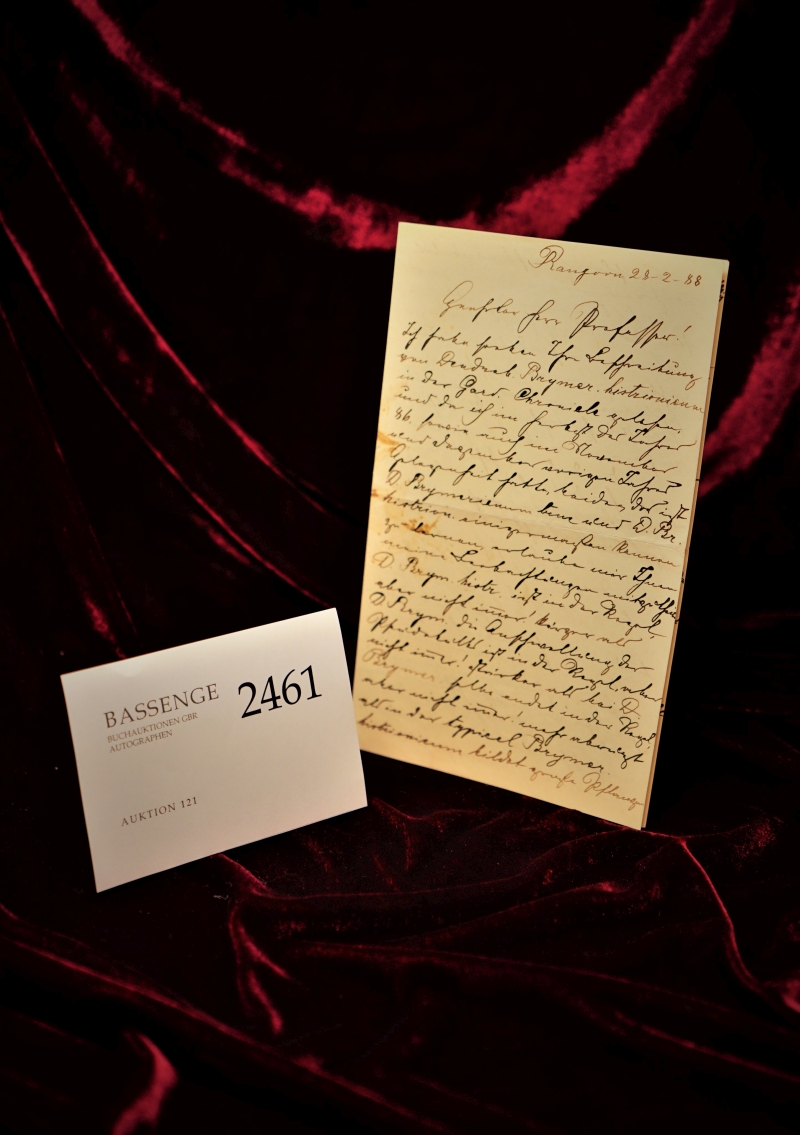 BASSENGE
BUCHAUKTIONEN GBR
AUTOGRAPHEN
2461
AUKTION 121
Rangoon 28-2-88
Geehrter Herr Professor!
Ich habe soeben Ihre Beschreibung
von Dendrob. Brymer. histrionicum
in der Gard. Chronicle gelesen,
und da ich im Herbst des Jahres
86, sowie auch im November
und Dezember vorigen Jahres
Gelegenheit hatte, beides das ist
D Brymerianum und D. Br.
histrion. einigermaßen kennen
zu lernen erlaube mir Ihnen
meine Beobachtungen
D Brym. histr. ist in der Regel,
aber nicht immer! kürzer als
D Brym. die Anschwellung der
ist in der Regel, aber
nicht immer! stärker als bei D.
Brymer. selbe endet in der Regel,
aber nicht immer! mehr
als in der typical Brymer
histrionicum bildet große Pflanzen